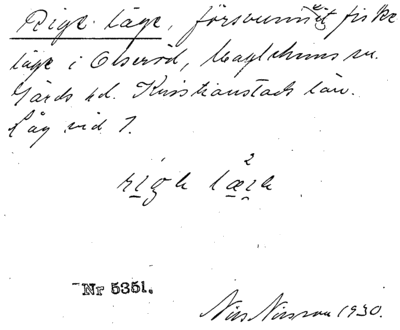 Rige läge, försvunnet fiske
läge i Olseröd, Maglehems sn.
Gärds hd. Kristianstads län.
Låg vid 7.
Nr 5351.
Nils Nilsson 1930.